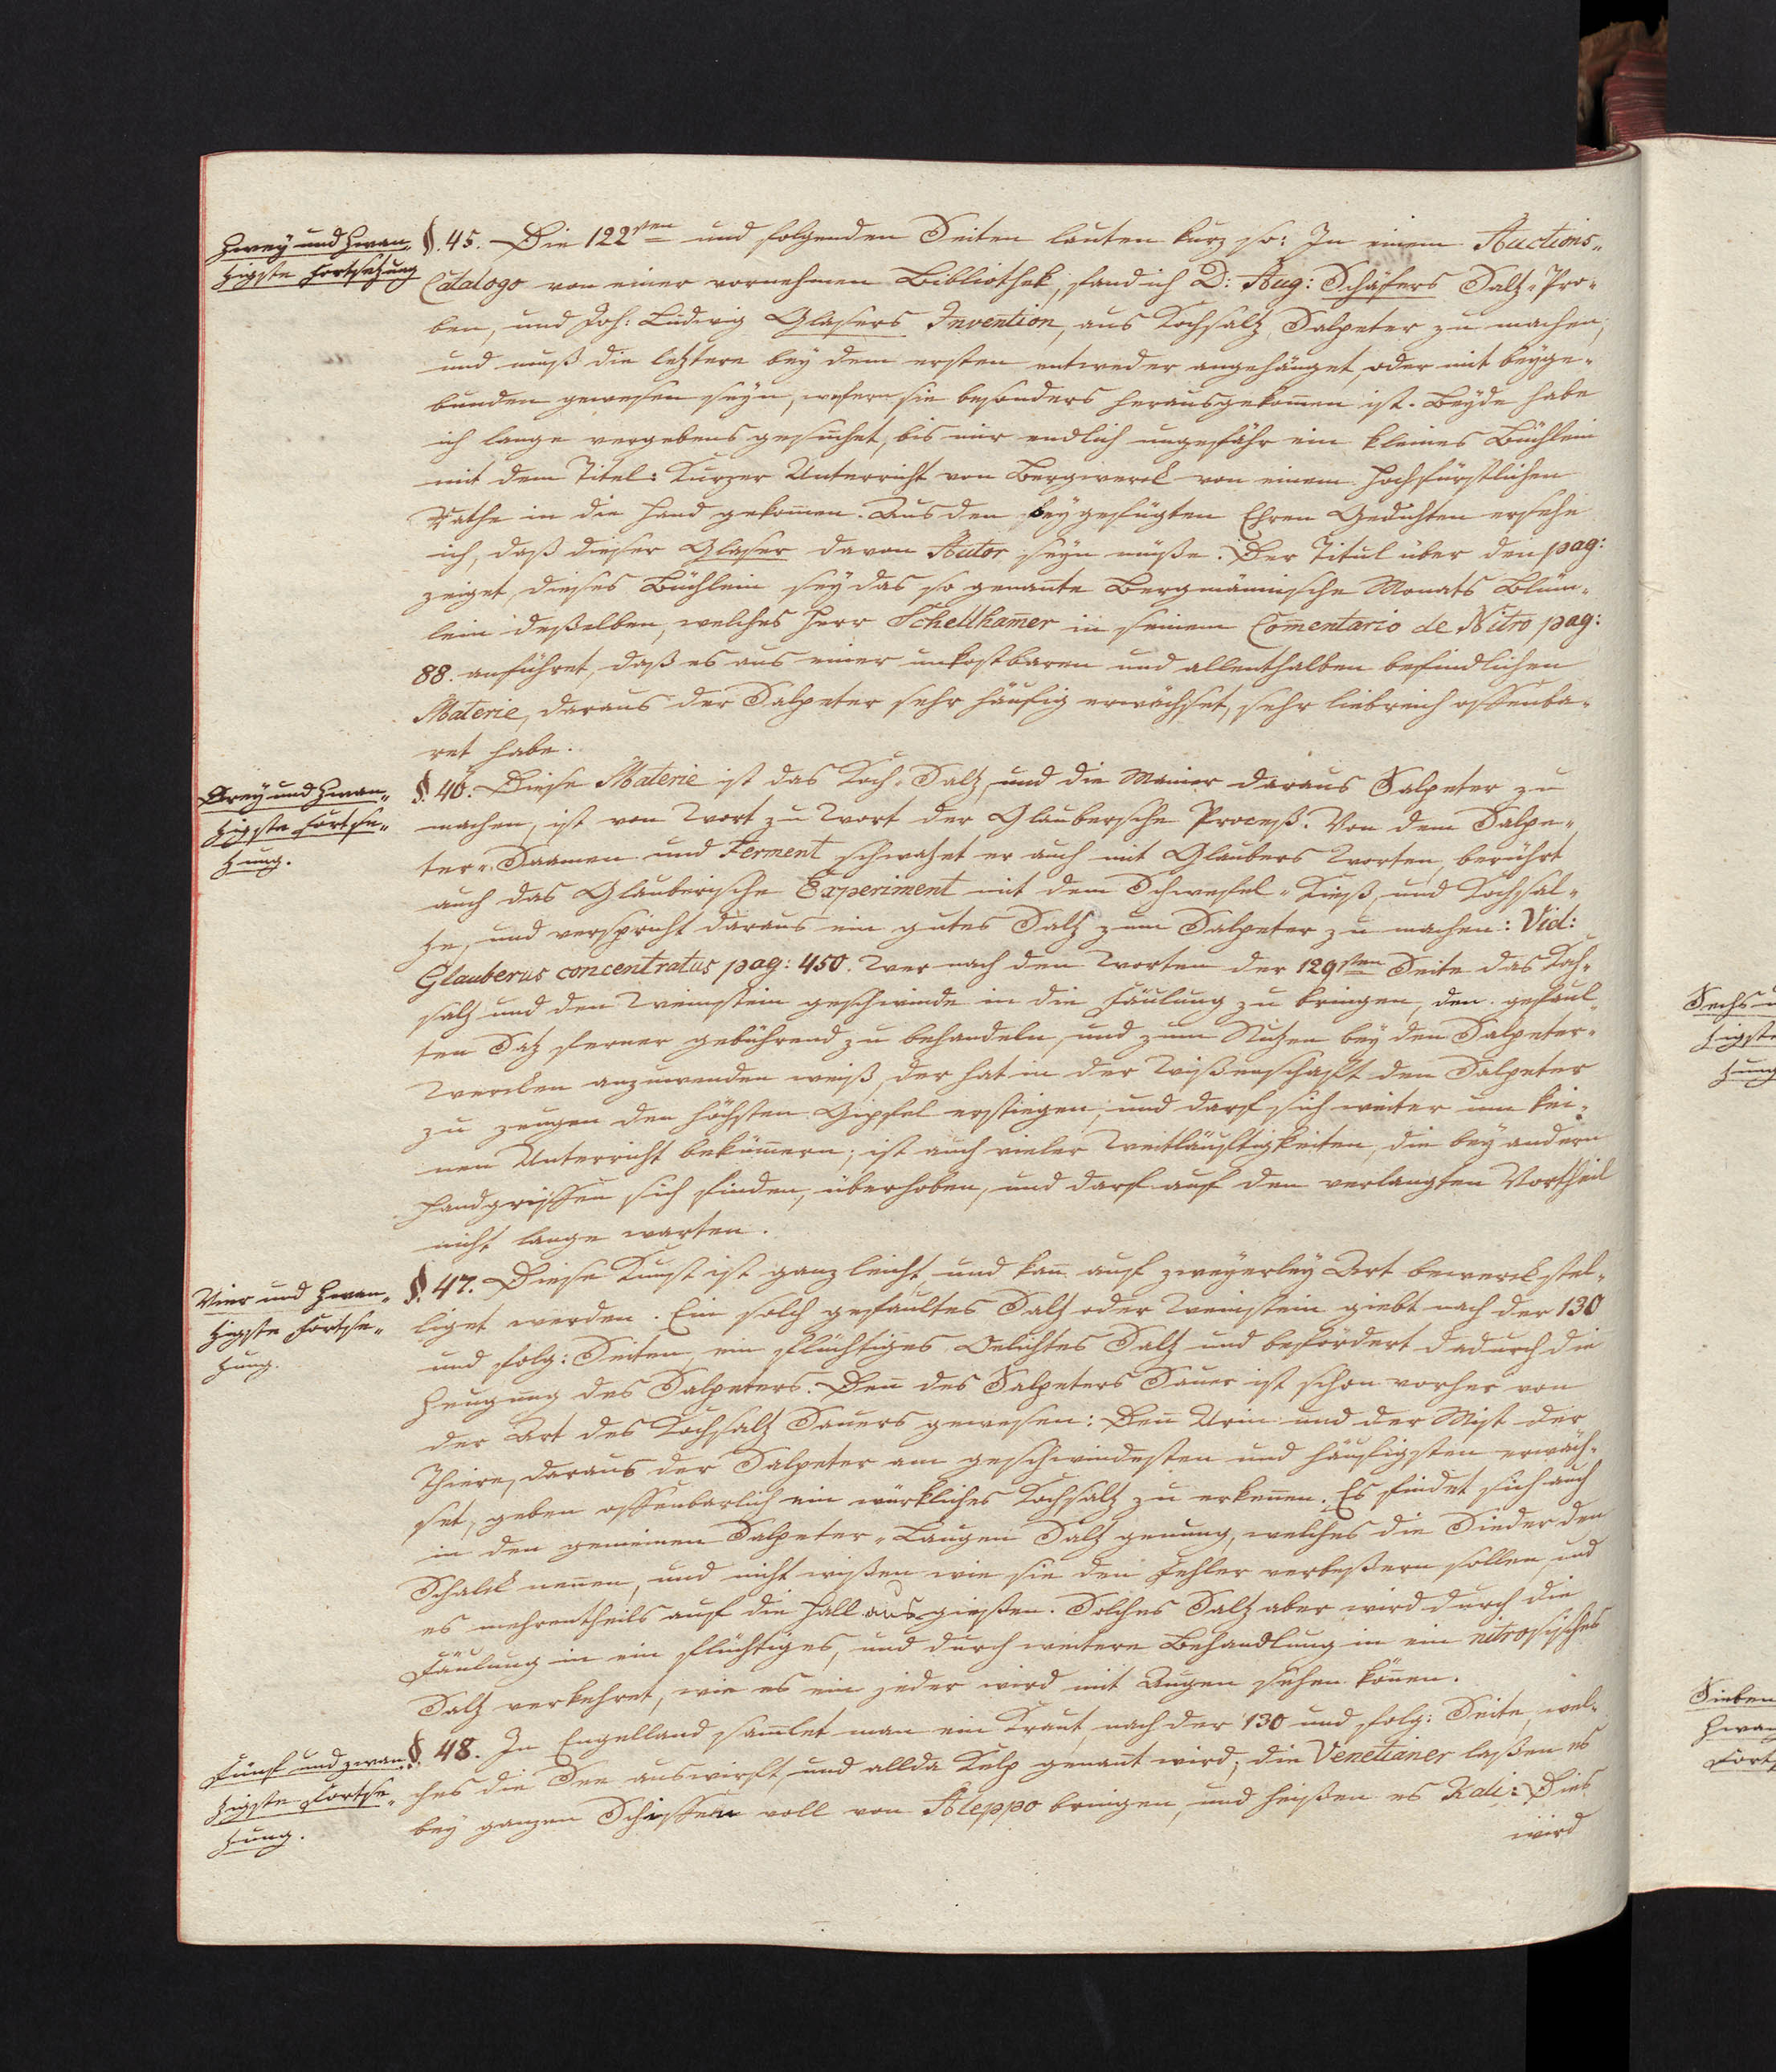 Zwey und Zwan-
zigste Fortsetzung
§. 45. Die 122sten und folgenden Seiten lauten kurz so: In einem Auctions-
Catalogo von einer vornehmen Bibliothek, fand ich D: Aug: Schäfers Saltz-Pro-
ben, und Joh: Ludwig Glasers Invention, aus Kochsaltz Salpeter zu machen;
und muß die letztere bey dem ersten entweder angehänget, oder mit beyge-
bunden gewesen seyn, wofern sie besonders herausgekom̄en ist. Beyde habe
ich lange vergebens gesuchet, bis mir endlich ungefähr ein kleines Büchlein
mit dem Titel: Kurzer Unterricht von Bergwerck von einem Hochfürstlichen
Rathe in die Hand gekom̄en. Aus den beygefügten Ehren Gedichten ersehe
ich, daß dieser Glaser davon Autor seyn müße. Der Titul über den pag:
zeiget, dieses Büchlein sey das so genan̄te Bergmännische Monats Blüm-
lein deßelben, welches Herr Schellham̄er in seinem Com̄entario de Nitro pag:
88. anführet, daß es aus einer unkostbaren und allenthalben befindlichen
Materie, daraus der Salpeter sehr häufig erwächset, sehr liebreich offenba-
ret habe.
Drey und Zwan-
zigste Fortse-
zung.
§. 46. Diese Materie ist das Koch-Saltz, und die Manier daraus Salpeter zu
machen, ist von Wort zu Wort der Glaubersche Proceß. Von dem Salpe-
ter-Saamen und Ferment schwatzet er auch mit Glaubers Worten, berührt
auch das Glauberische Experiment mit dem Schwefel-Kieß, und Kochsal-
ze, und verspricht daraus ein gutes Saltz zum Salpeter zu machen: Vid:
Glauberus concentratus pag: 450. Wer nach den Worten der 129sten Seite das Koch-
saltz und den Weinstein geschwinde in die Fäulung zu bringen, den gefaul-
ten Satz ferner gebührend zu behandeln, und zum Nutzen bey den Salpeter-
Wercken anzuwenden weiß, der hat in der Wißenschafft den Salpeter
zu zeugen den höchsten Gipfel erstiegen; und darf sich weiter um kei-
nen Unterricht beküm̄ern; ist auch vieler Weitläuftigkeiten, die bey andern
Handgriffen sich finden, überhoben, und darf auf den verlangten Vortheil
nicht lange warten.
Vier und Zwan-
zigste Fortse-
zung.
§. 47. Diese Kunst ist ganz leicht, und kan̄ auf zweyerley Art bewerckstel-
liget werden. Ein solch gefaultes Saltz oder Weinstein giebt nach der 130
und folg: Seiten, ein flüchtiges Oelichtes Saltz und befördert dadurch die
Zeugung des Salpeters. Den̄ des Salpeters Sauer ist schon vorher von
der Art des Kochsaltz Sauers gewesen: Den̄ Urin und der Mist der
Thiere, daraus der Salpeter am geschwindesten und häufigsten erwäch-
set, geben offenbarlich ein würkliches Kochsaltz zu erken̄en. Es findet sich auch
in den gemeinen Salpeter-Laugen Saltz genung, welches die Sieder den
Schalck nen̄en, und nicht wißen wie sie den Fehler verbeßern sollen und
es mehrentheils auf die Hall ausgießen. Solches Saltz aber wird durch die
Fäulung in ein flüchtiges, und durch weitere Behandlung in ein nitrosisches
Saltz verkehret, wie es ein jeder wird mit Augen sehen kön̄en.
Fünf und zwan-
zigste Fortse-
zung.
§. 48. In Engelland sam̄let man ein Kraut, nach der 130 und folg: Seite, wel-
ches die See auswirft, und allda Kelp genan̄t wird; die Venetianer laßen es
bey ganzen Schiffen voll von Aleppo bringen, und heißen es Kali: Dies
wird
Sechs u
zigste
zung
Sieben
Zwan
Forts